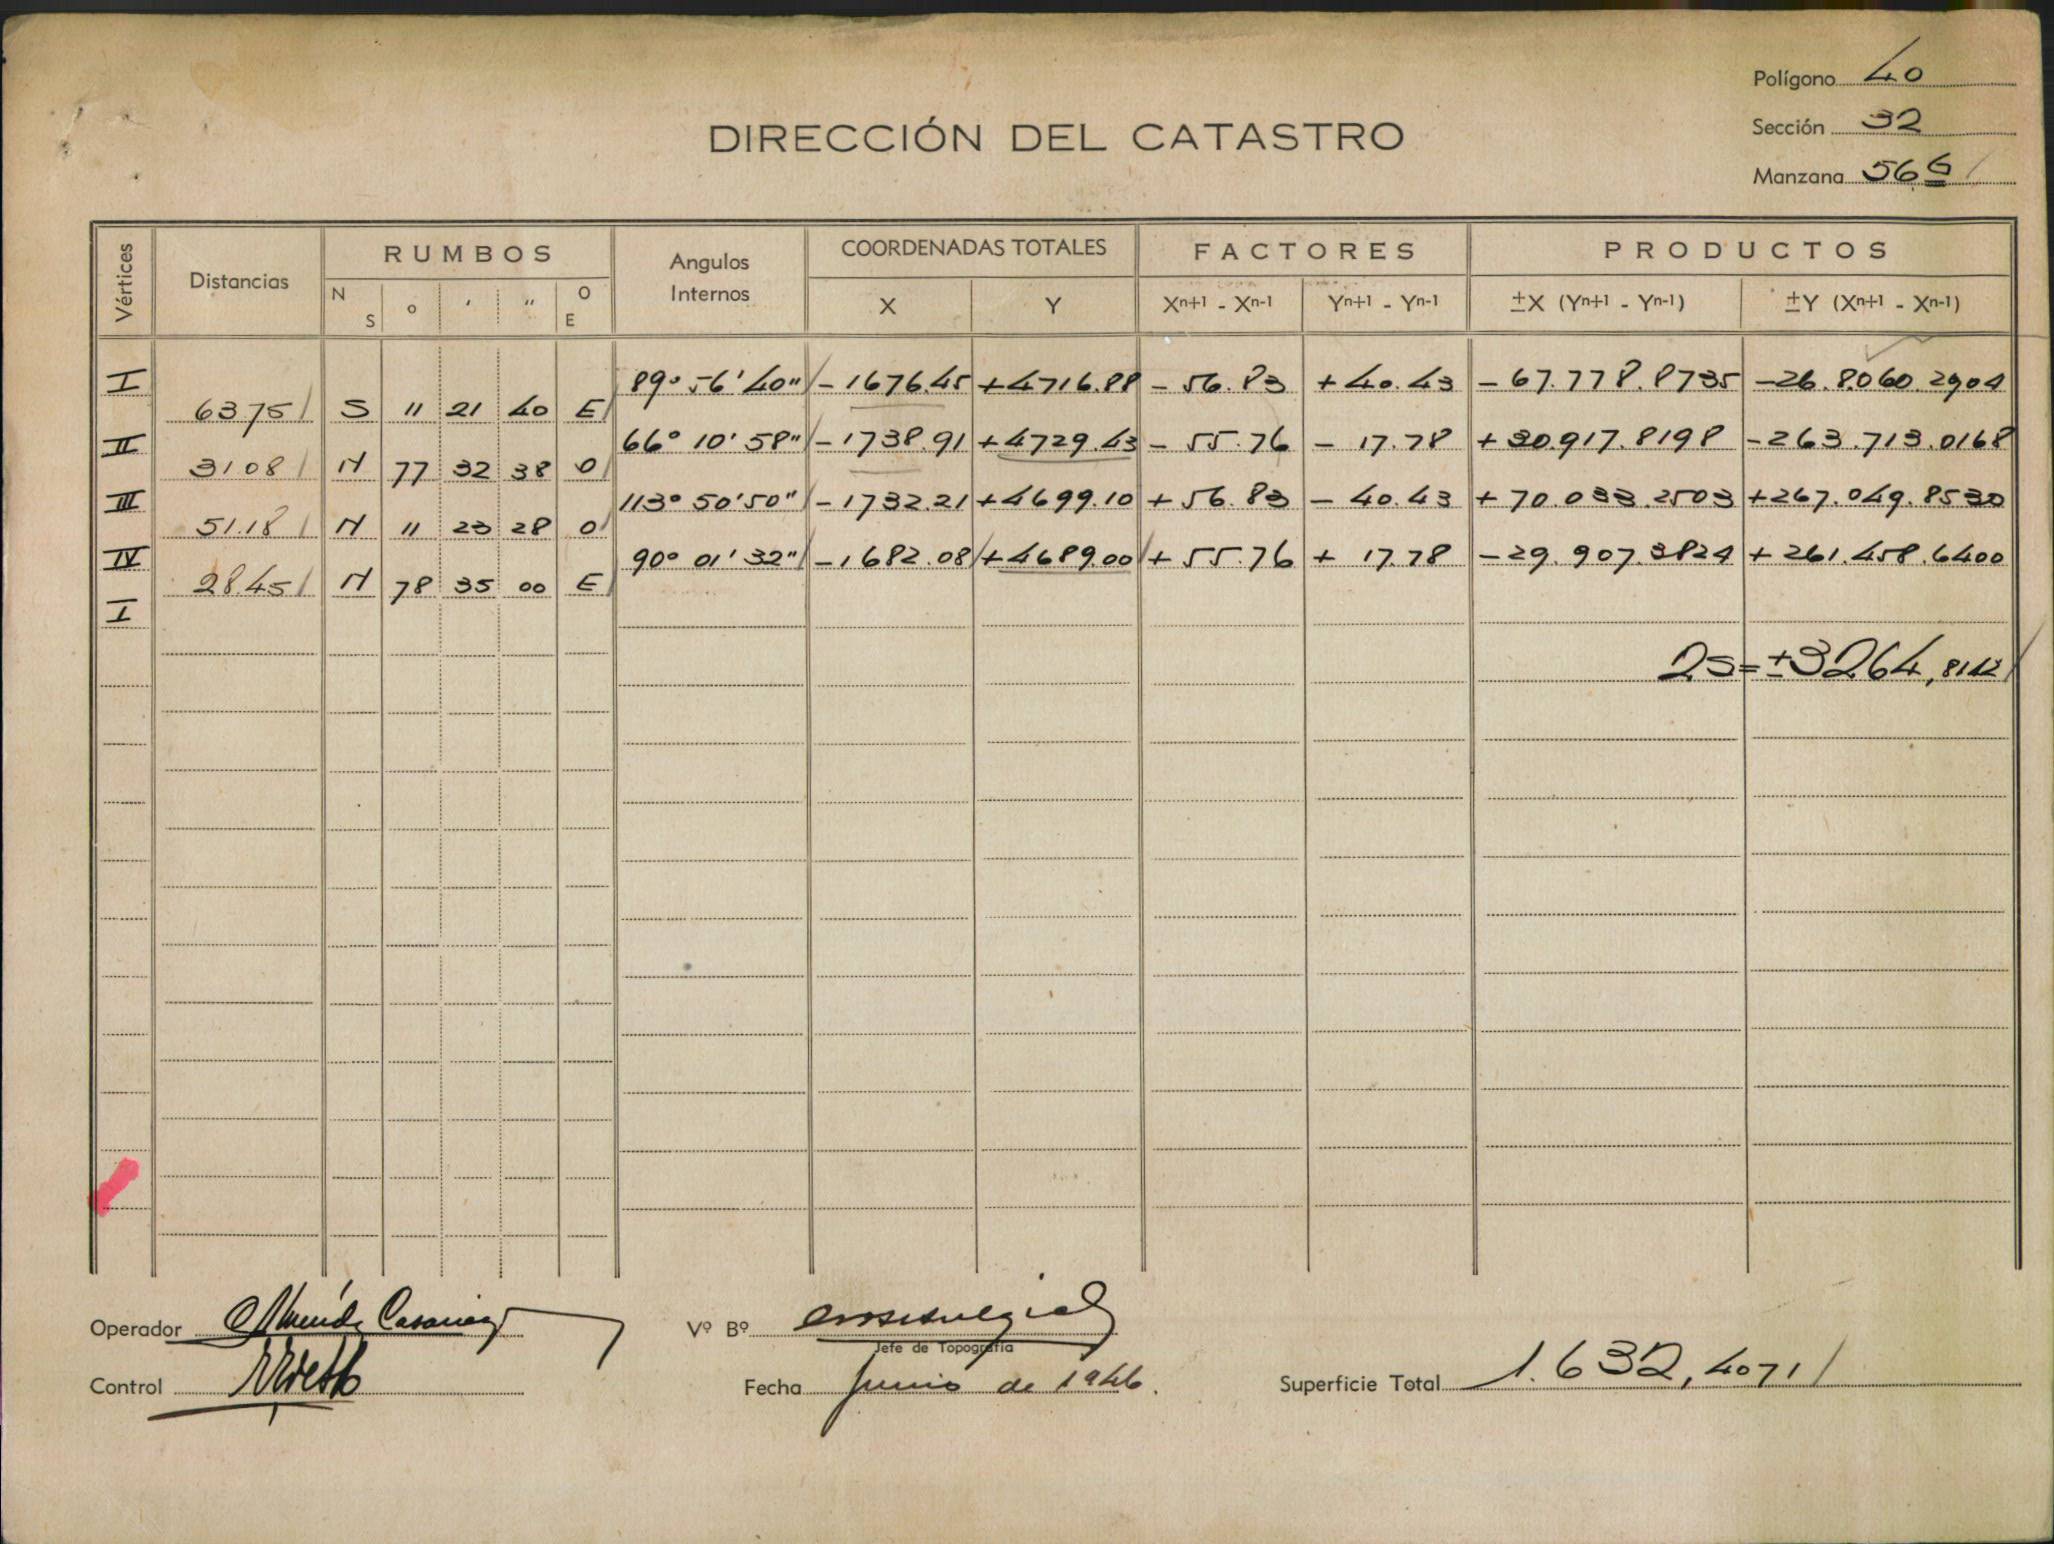 Polígono 40
DIRECCIÓN DEL CATASTRO
Sección 32
Manzana 56 G
Vértices
Distancias
RUMBOS
N S o ′ ″ O E
Angulos Internos
COORDENADAS TOTALES
X Y
FACTORES
Xn+1 - Xn-1 Yn+1 - Yn-1
PRODUCTOS
±X (Yn+1 - Yn-1) ±Y (Xn+1 - Xn-1)
I 89° 56' 40" -1676.45 +4716.88 -56.83 +40.43 -67.778.8735 -26.8.060.2904
63.75 S 11 21 40 E
II 66° 10' 58" -1738.91 +4729.43 -55.76 -17.78 +30.917.8198 -263.713.0168
31.08 N 77 32 38 O
III 113° 50' 50" -1732.21 +4699.10 +56.83 -40.43 +70.033.2503 +267.049.8530
51.18 N 11 23 28 O
IV 90° 01' 32" -1682.08 +4689.00 +55.76 +17.78 -29.907.3824 +261.458.6400
28.45 N 78 35 00 E
I
2S=±3264,8142
Operador
Vº Bº
Jefe de Topografía
Control
Fecha Junio de 1946.
Superficie Total 1.632,4071